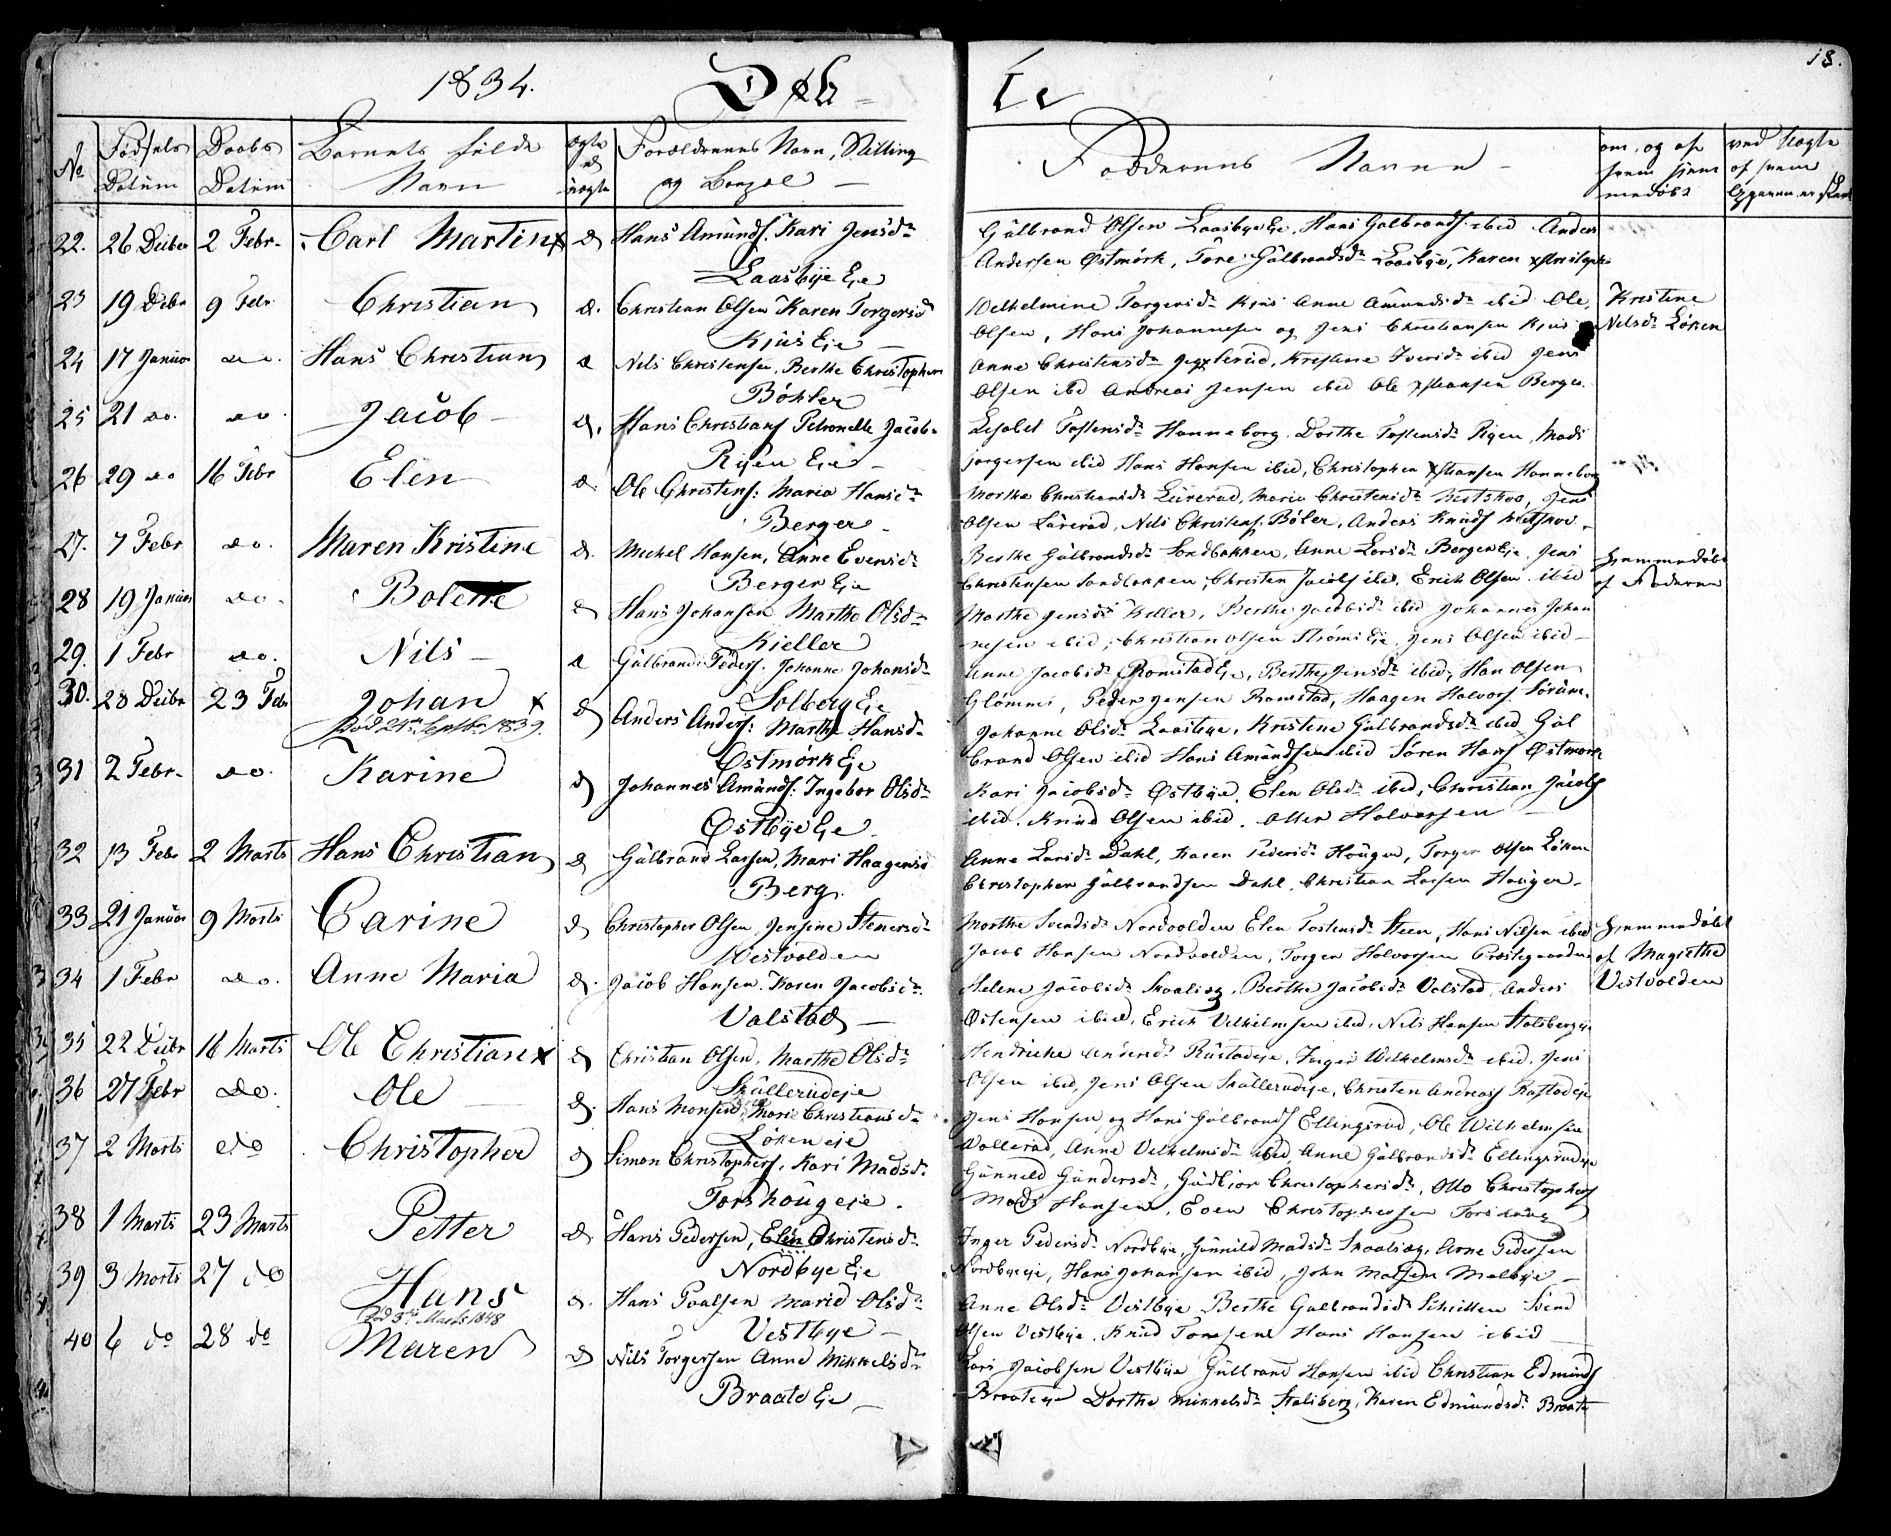 1834. Døb-
te
18.
No
Fødsels Datum
Daabs Datum
Barnets fulde Navn
ægte ed uægte
Forældrenes Navn, Stilling og Bopæl
Faddernes Navne
om, og af hvem hjemmedøbt
22. 26 Decber 2 Febr. Carl Martin x æ Hans Amunds. Kari Jensdr
Laasbye Eje
Gulbrand Olsen Laasbye Eje, Hans Gulbrands. ibid Anders
Andersen Østmörk, Tore Gulbrandsdr Laasbye, Karen
23 19 Decbr 9 Febr Christian æ. Christian Olsen Karen Torgersd
Kjus Eje
Wilhelmine Torgersdr Kjus Anne Amundsdr ibid Ole
Olsen, Hans Johannesen og Jens Christiansen Kjus
Kristine
Nilsdr Löken
24 17 Januar do. Hans Christian æ Nils Christensen, Berthe Christophers
Böhler
Anne Christensdr Kristine Iversdr ibid Jens
Olsen ibid Andreas Jensen ibid Ole Xstiansen Berger
25 21 do. do. Jacob æ. Hans Christians Petronelle Jacob.
Rijen Eje
Lisabet Tostensdr Hanneborg. Dorthe Tostensdr Rijen, Mads
Jorgersen ibid Hans Hansen ibid, Christopher Xstiansen Hanneborg
26 29 do 16 Febr Elen æ. Ole Christens: Maria Hansdr
Berger
Marthe Christiansdr Lürerud, Maria Christensdr Jens
Olsen Lürerud, Nils Christens. Böler, Anders Knuds
27. 7 Febr do. Maren Kristine æ. Mickel Hansen, Anne Evensdr
Berger Eje
Berthe Gulbrandsdr Sandbakken, Anne Larsdr Berger Eje, Jens
Christensen Sandbakken, Christen Jacobs ibid, Erich Olsen ibid
hjemmedøbt
af Faderen
28 19 Januar do. Bolette æ Hans Johansen Marthe Olsdr
Kieller
Marthe Jensdr Kieller, Berthe Jacobsdr ibid Johannes Johan
nesen ibid, Christian Olsen Ströms Eje, Jens Olsen ibid
29. 1 Febr do. Nils æ Gulbrand Peders. Johanne Johansdr
Solberg Eje
Anne Jacobsdr Romstad Eje, Berthe Jensdr ibid, Hans Olsen
Glömmi, Peder Jensen Ramstad, Haagen Halvors. Sörum.
30. 28 Decbr 23 Febr Johan x æ Anders Anders: Marthe Hansdr
Död 21de Septbr 1839.
Østmörk Eje
Johanne Olsdr Laasbye, Kristine Gulbrandsdr ibid Gul
brand Olsen ibid Hans Amundsen ibid Sören Hans. Østmörk
31 2 Febr. do. Karine æ Johannes Amunds: Ingebor Olsdr
Østbye Eje
Kari Jacobsdr Østbye, Elen Olsdr ibid, Christian Jacobs
ibid. Knud Olsen ibid. Otter Halvorsen
32 13 Febr 2 Marts Hans Christian æ Gulbrand Larsen, Mari Haagensd
Berg.
Anne Larsdr Dahl, Karen Pedersdr Houger, Torger Olsen Löken
Christopher Gulbrandsen Dahl, Christian Larsen Houger.
33 21 Januar 9 Marts Carine æ Christopher Olsen, Jensine Stenersdr
Westvolden
Marthe Svendsdr Nordvolden Elen Tostensdr Steen, Hans Nilsen ibid
Jacob Hansen Nordvolden, Torger Halvorsen Præstegaarden
hjemmedøbt
af Magrethe
Vestvolden
34 1 Febr do. Anne Maria æ. Jacob Hansen. Karen Jacobsdr.
Valstad
Helene Jacobsdr Skaalieg, Berthe Jacobsdr Valstad, Anders
Østensen ibid, Erich Vilhelmsen ibid, Nils Hansen Stalsbergeje
35 22 Decbr 16 Marts Ole Christian x æ Christian Olsen, Marthe Olsdr
Skullerudeje
Hendricke Andersdr Rustadeje, Inger Wilhelmsdr ibid, Jens
Olsen ibid, Jens Olsen Skullerudeje, Christen Andreas. Rustadeje
36 27 Febr do. Ole æ. Hans Monsen, Marie Christiansdr
Löken eje
Jens Hansen, og Hans Gulbrands Ellingsrud, Ole Wilhelmsen
Vollerud, Anne Velhelmsdr ibid, Anne Gulbrandsdr Ellingsrudeje
37 2 Marts do Christopher æ Simon Christophers. Kari Madsdr
Torshougeje.
Gunnild Gundersdr, Gudbjör Christophersdr, Otto Christophers
Mads Hansen, Even Christophersen Torshoug
38 1 Marts 23 Marts Petter æ. Hans Pedersen, Elen Christensdr
Nordbye Eje
Inger Pedersdr Nordbye, Gunnild Madsdr Skaalieg, Arne Pedersen
Nordbyeeje, Hans Johansen ibid, John Madsen Melbye
39 3 Marts 27 do Hans æ. Hans Poulsen Marie Olsdr
Död 3de Marts 1848
Vestbye
Anne Olsdr Vestbye Berthe Gulbrandsdr Svend
Olsen Vestbye. Knud Hans Hansen ibid
40 6 do 28 do Maren æ Nils Torgersen Anne Mikkelsdr
Braate Eje
Lars Jacobsen Vestbye Gulbrand Hansen ibid Christian Edmunds
Braateeje Dorthe Mikkelsdr Stalsberg, Karen Edmundsdr Braate